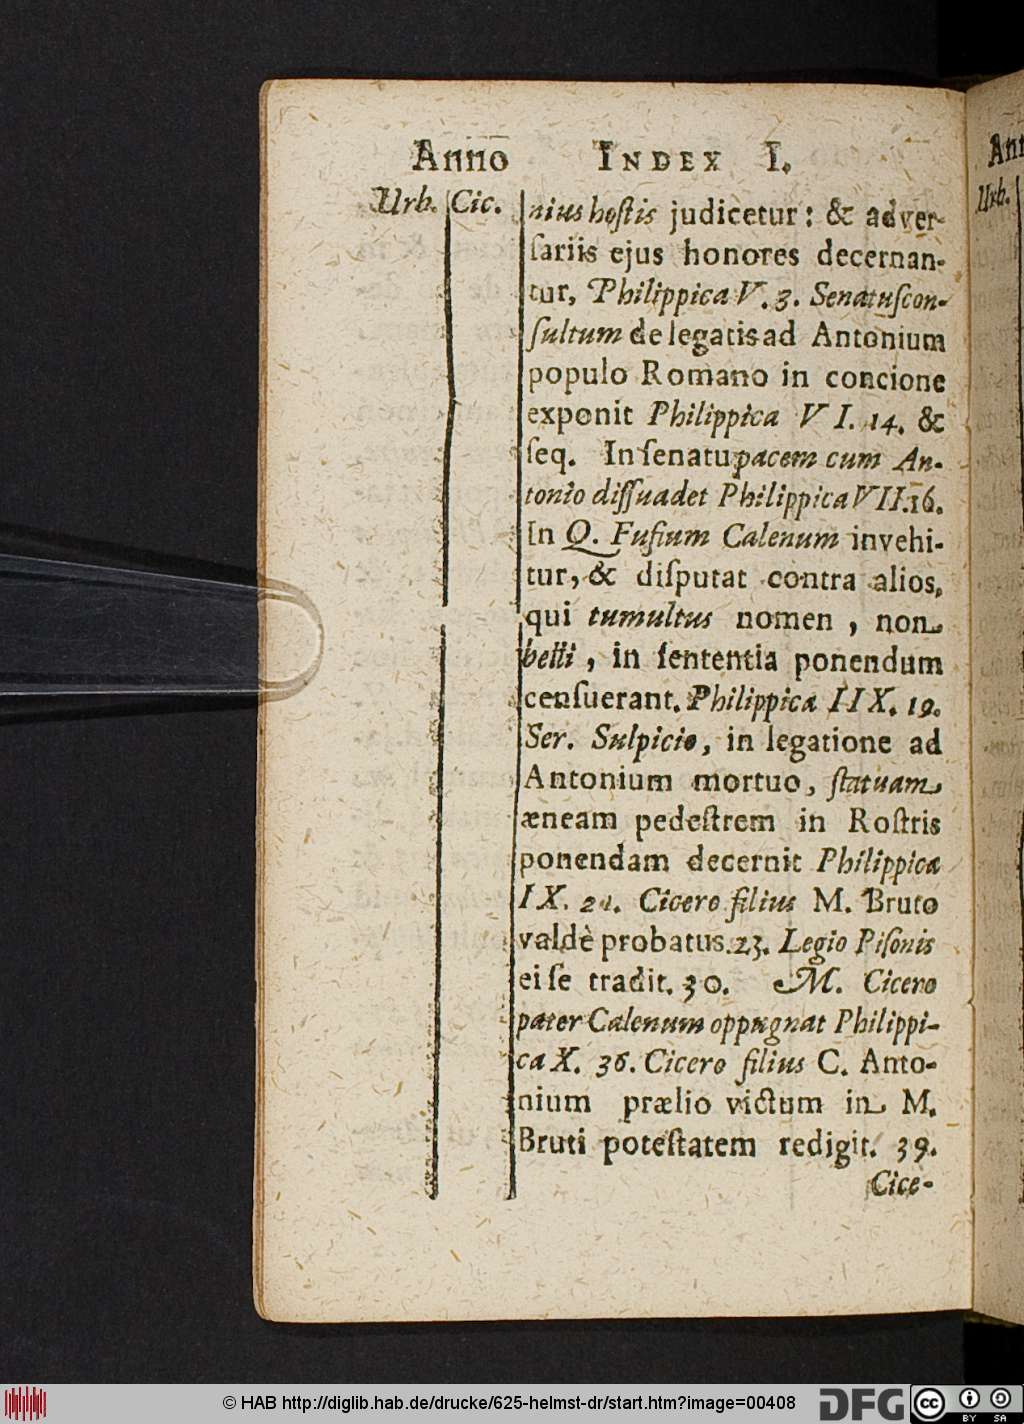 Anno INDEX I.
Urb. Cic.
nius hoſtis judicetur: & adver-
ſariis ejus honores decernan-
tur, Philippica V. 3. Senatuſcon-
ſultum de legatis ad Antonium
populo Romano in concione
exponit Philippica VI. 14. &
ſeq. In ſenatu pacem cum An-
tonio diſſuadet Philippica VII. 16.
In Q. Fufium Calenum invehi-
tur, & diſputat contra alios,
qui tumultus nomen, non
belli, in ſententia ponendum
cenſuerant. Philippica IIX. 19.
Ser. Sulpicio, in legatione ad
Antonium mortuo, ſtatuam
æneam pedeſtrem in Roſtris
ponendam decernit Philippica
IX. 21. Cicero filius M. Bruto
valdè probatus. 23. Legio Piſonis
ei ſe tradit. 30. M. Cicero
pater Calenum oppugnat Philippi-
ca X. 36. Cicero filius C. Anto-
nium prælio victum in M.
Bruti poteſtatem redigit. 39.
Cice-
Ann
Urb.
© HAB http://diglib.hab.de/drucke/625-helmst-dr/start.htm?image=00408
DFG
cc BY SA